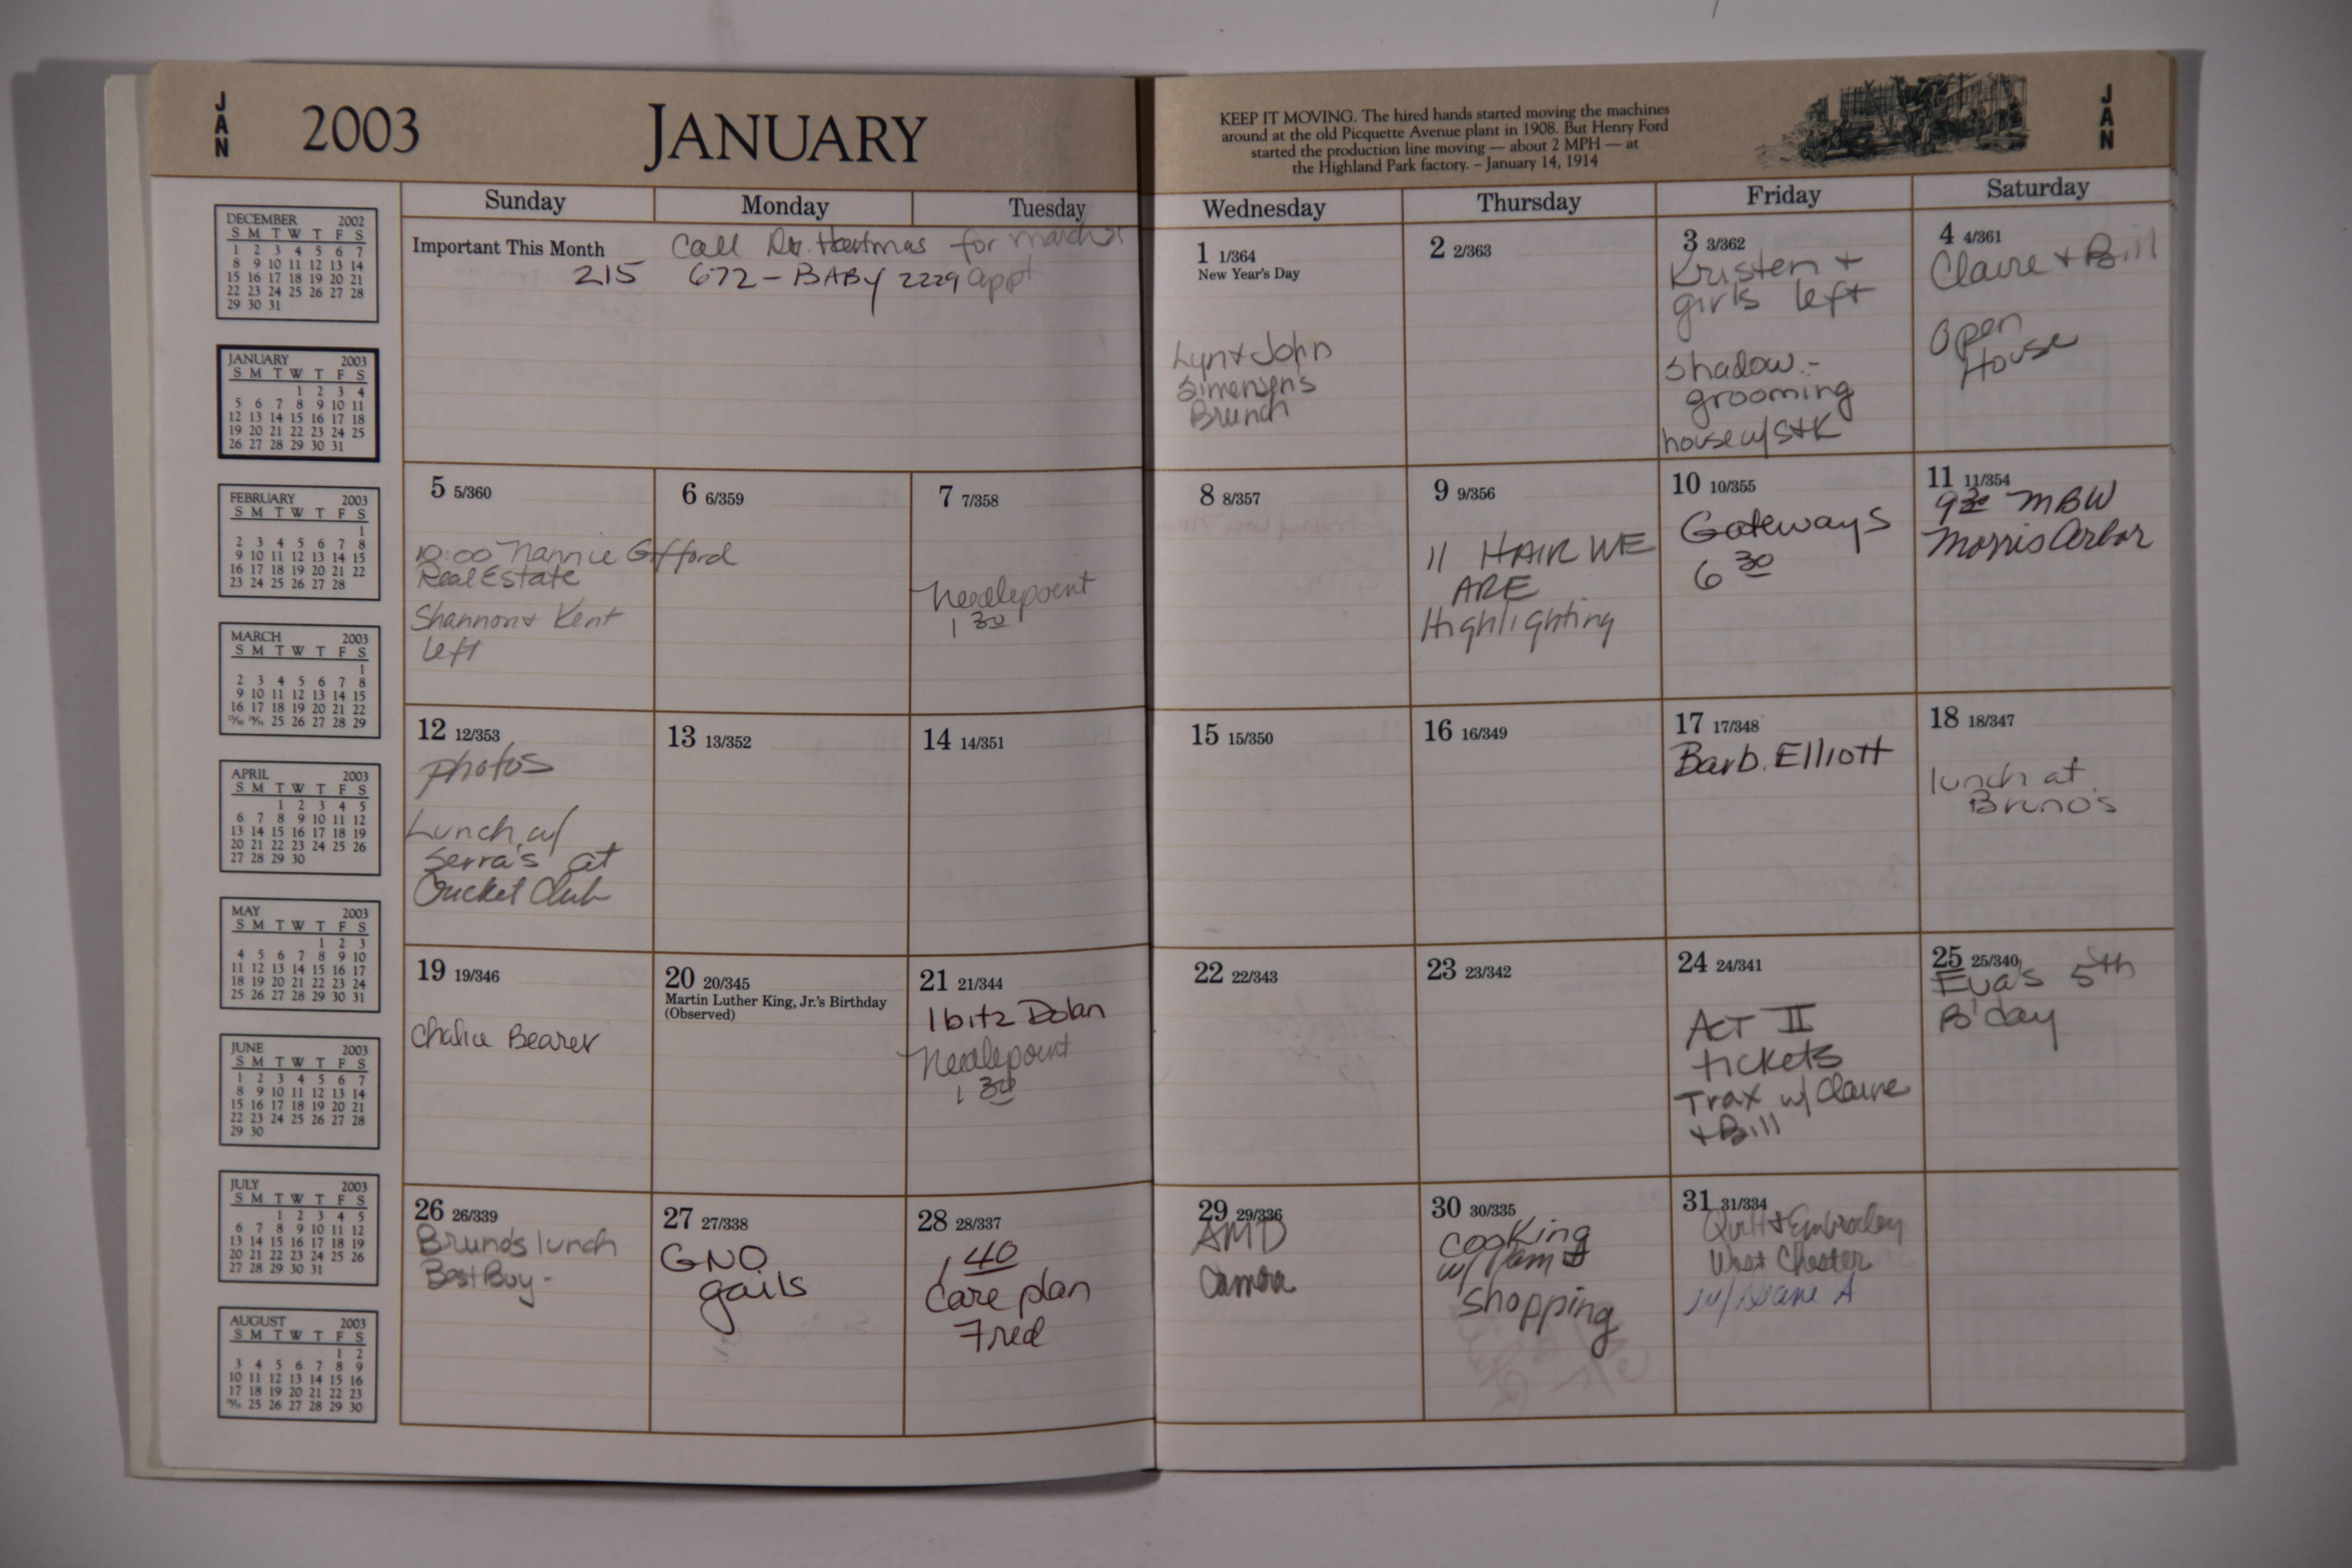 JAN
2003
JANUARY
KEEP IT MOVING. The hired hands started moving the machines
around at the old Picquette Avenue plant in 1908. But Henry Ford
started the production line moving — about 2 MPH — at
the Highland Park factory. – January 14, 1914
JAN
Sunday Monday Tuesday Wednesday Thursday Friday Saturday
Important This Month
Call Dr. for
215 672-BABY 2229 appt
1 1/364
New Year's Day
Lyn + John
Simensen's
Brunch
2 2/363
3 3/362
Kristen +
girls left
Shadow -
grooming
house w/ S+K
4 4/361
Claire + Bill
Open
House
5 5/360
10:00 Nannie Gifford
Real Estate
Shannon + Kent
left
6 6/359
7 7/358
Needlepoint
1 30
8 8/357
9 9/356
11 HAIR WE
ARE
Highlighting
10 10/355
Gateways
6 30
11 11/354
9 30 MBW
Morris Arbor
12 12/353
photos
Lunch w/
Serra's at
Cricket Club
13 13/352
14 14/351
15 15/350
16 16/349
17 17/348
Barb. Elliott
18 18/347
lunch at
Bruno's
19 19/346
Chalice Bearer
20 20/345
Martin Luther King, Jr.'s Birthday
(Observed)
21 21/344
Dolan
Needlepoint
1 30
22 22/343
23 23/342
24 24/341
ACT II
tickets
Trax w/ Claire
+ Bill
25 25/340
Eva's 5th
B'day
26 26/339
Bruno's lunch
Best Buy -
27 27/338
GNO
gails
28 28/337
1 40
Care plan
Fred
29 29/336
AMD
Camera
30 30/335
cooking
w/ Pam
shopping
31 31/334
Quilt +
West Chester
w/ A
DECEMBER 2002
S M T W T F S
1 2 3 4 5 6 7
8 9 10 11 12 13 14
15 16 17 18 19 20 21
22 23 24 25 26 27 28
29 30 31
JANUARY 2003
S M T W T F S
1 2 3 4
5 6 7 8 9 10 11
12 13 14 15 16 17 18
19 20 21 22 23 24 25
26 27 28 29 30 31
FEBRUARY 2003
S M T W T F S
1
2 3 4 5 6 7 8
9 10 11 12 13 14 15
16 17 18 19 20 21 22
23 24 25 26 27 28
MARCH 2003
S M T W T F S
1
2 3 4 5 6 7 8
9 10 11 12 13 14 15
16 17 18 19 20 21 22
23/30 24/31 25 26 27 28 29
APRIL 2003
S M T W T F S
1 2 3 4 5
6 7 8 9 10 11 12
13 14 15 16 17 18 19
20 21 22 23 24 25 26
27 28 29 30
MAY 2003
S M T W T F S
1 2 3
4 5 6 7 8 9 10
11 12 13 14 15 16 17
18 19 20 21 22 23 24
25 26 27 28 29 30 31
JUNE 2003
S M T W T F S
1 2 3 4 5 6 7
8 9 10 11 12 13 14
15 16 17 18 19 20 21
22 23 24 25 26 27 28
29 30
JULY 2003
S M T W T F S
1 2 3 4 5
6 7 8 9 10 11 12
13 14 15 16 17 18 19
20 21 22 23 24 25 26
27 28 29 30 31
AUGUST 2003
S M T W T F S
1 2
3 4 5 6 7 8 9
10 11 12 13 14 15 16
17 18 19 20 21 22 23
24/31 25 26 27 28 29 30